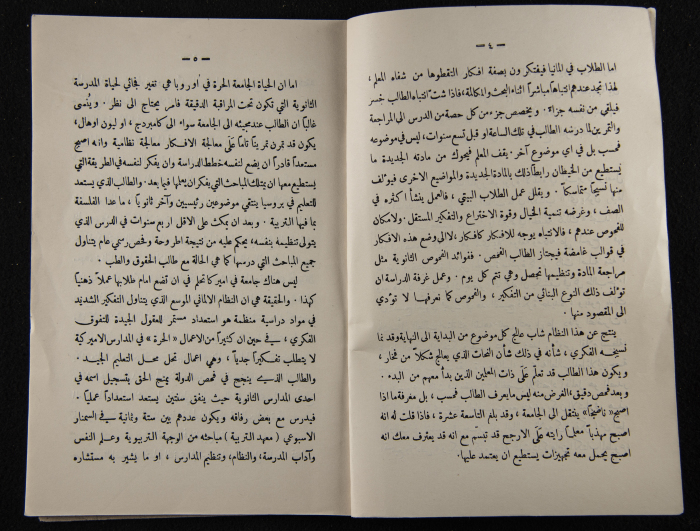 — ٤ —
اما الطلاب في المانيا فيفتكرون بصفة افكار التقطوها من شفاه المعلم ،
لهذا تجد عندهم انتباهاً مباشراً اثناء البحث والمكالمة، فاذا شت انتباه الطالب خسر
فيلقي من نفسه جزاءً . ويخصص جزء من كل حصة من الدرس الى المراجعة
والتمرين لما درسه الطالب في تلك الساعة او قبل تسع سنوات، ليس في موضوعه
فحسب بل في اي موضوع آخر . يقف المعلم فيحوك من مادته الجديدة ما
يستطيع من الخيطان رابطاً ذلك بالمادة الجديدة والمواضيع الاخرى فيؤلف
منها نسيجاً متماسكاً . ويقلل عمل الطلاب البيتي ، فالعمل ينشأ اكثره في
الصف ، وغرضه تنمية الخيال وقوة الاختراع والتفكير المستقل. ولا مكان
للغموض عندهم ، فالانتباه يوجه للافكار كافكار ، لا الى وضع هذه الافكار
في قوالب غامضة فيجتاز الطالب الفحص . ففوائد الفحوص الثانوية مثل
مراجعة المادة وتنظيمها تحصل وهي تتم كل يوم . وعمل غرفة الدراسة ان
تؤلف ذلك النوع البنائي من التفكير ، والفحوص كما نعرفها لا تؤدي
الى المقصود منها .
ينتج عن هذا النظام شاب عالج كل موضوع من البداية الى النهاية وقد نما
نسيجه الفكري ، شأنه في ذلك شأن النحات الذي يعالج شكلاً من فخار ،
ويكون هذا الطالب قد تعلم على ذات المعلمين الذين بدأ معهم من البدء .
وبعد فحص دقيق، الغرض منه ليس ما يعرف الطالب فحسب ، بل معرفة ما اذا
اصبح «ناضجاً» ينتقل الى الجامعة ، وقد بلغ التاسعة عشرة ، فاذا قلت له انه
اصبح مهذباً معلماً رايته على الارجح قد تبسم مع انه قد يعترف معك انه
اصبح يحمل معه تجهيزات يستطيع ان يعتمد عليها.
— ٥ —
اما ان الحياة الجامعة الحرة في اوروبا هي تغير فجائي لحياة المدرسة
الثانوية التي تكون تحت المراقبة الدقيقة فامر يحتاج الى نظر . ويُنسى
غالباً ان الطالب عند مجيئه الى الجامعة سواء الى كامبردج ، او ليون اوهال،
يكون قد تمرن تمريناً تاماً على معالجة الافكار معالجة نظامية وانه اصبح
مستعداً قادراً ان يضع لنفسه خطط الدراسة وان يفكر لنفسه في الطريقة التي
يستطيع معها ان يمتلك المباحث التي يفكر ان يعلمها فيما بعد . والطالب الذي يستعد
للتعليم في بروسيا ينتقي موضوعين رئيسيين وآخر ثانوياً ، ما عدا الفلسفة
بما فيها التربية . وبعد ان يمكث على الاقل اربع سنوات في الدرس الذي
يتولى تنظيمه بنفسه، يحكم عليه من نتيجة اطروحة وفحص رسمي عام يتناول
جميع المباحث التي درسها كما هي الحالة مع طالب الحقوق والطب .
ليس هناك جامعة في اميركا تحلم في ان تضع امام طلابها عملاً ذهنياً
كهذا . والحقيقة هي ان النظام الالماني الموسع الذي يتناول التفكير الشديد
في مواد دراسية منظمة هو استعداد مستمر للعقول الجيدة للتفوق
الفكري ، في حين ان كثيراً من الاعمال « الحرة » في المدارس الاميركية
لا يتطلب تفكيراً جدياً ، وهي اعمال تحل محل التعليم الجيد .
والطالب الذي ينجح في فحص الدولة يمنح الحق بتسجيل اسمه في
احدى المدارس الثانوية حيث ينفق سنتين يستعد استعداداً عملياً .
فيدرس مع بعض رفاقه ويكون عددهم بين ستة وثمانية في السمنار
الاسبوعي ( معهد التربية ) مباحثه من الوجهة التربيوية وعلم النفس
وآداب المدرسة، والنظام، وتنظيم المدارس ، او ما يشير به مستشاره